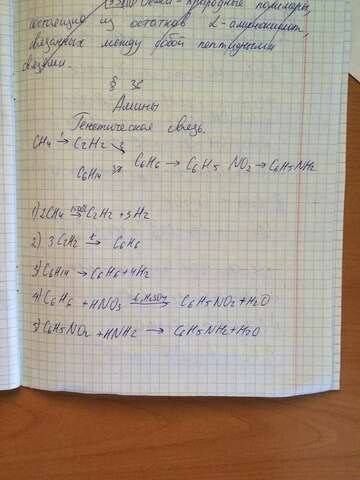 Белки - природные полимеры,
состоящие из остатков α-аминокислот,
связанных между собой пептидными
связями.
§ 36
Амины
Генетическая связь.
CH4 →¹ C2H2 ↘²
C6H14 →³ C6H6 → C6H5 NO2 → C6H5NH2
1) 2CH4 →1500 C2H2 + 3H2
2) 3C2H2 →t C6H6
3) C6H14 → C6H6 + 4H2
4) C6H6 + HNO3 →H2SO4 C6H5NO2 + H2O
5) C6H5NO2 + HNH2 → C6H5NH2 + H2O